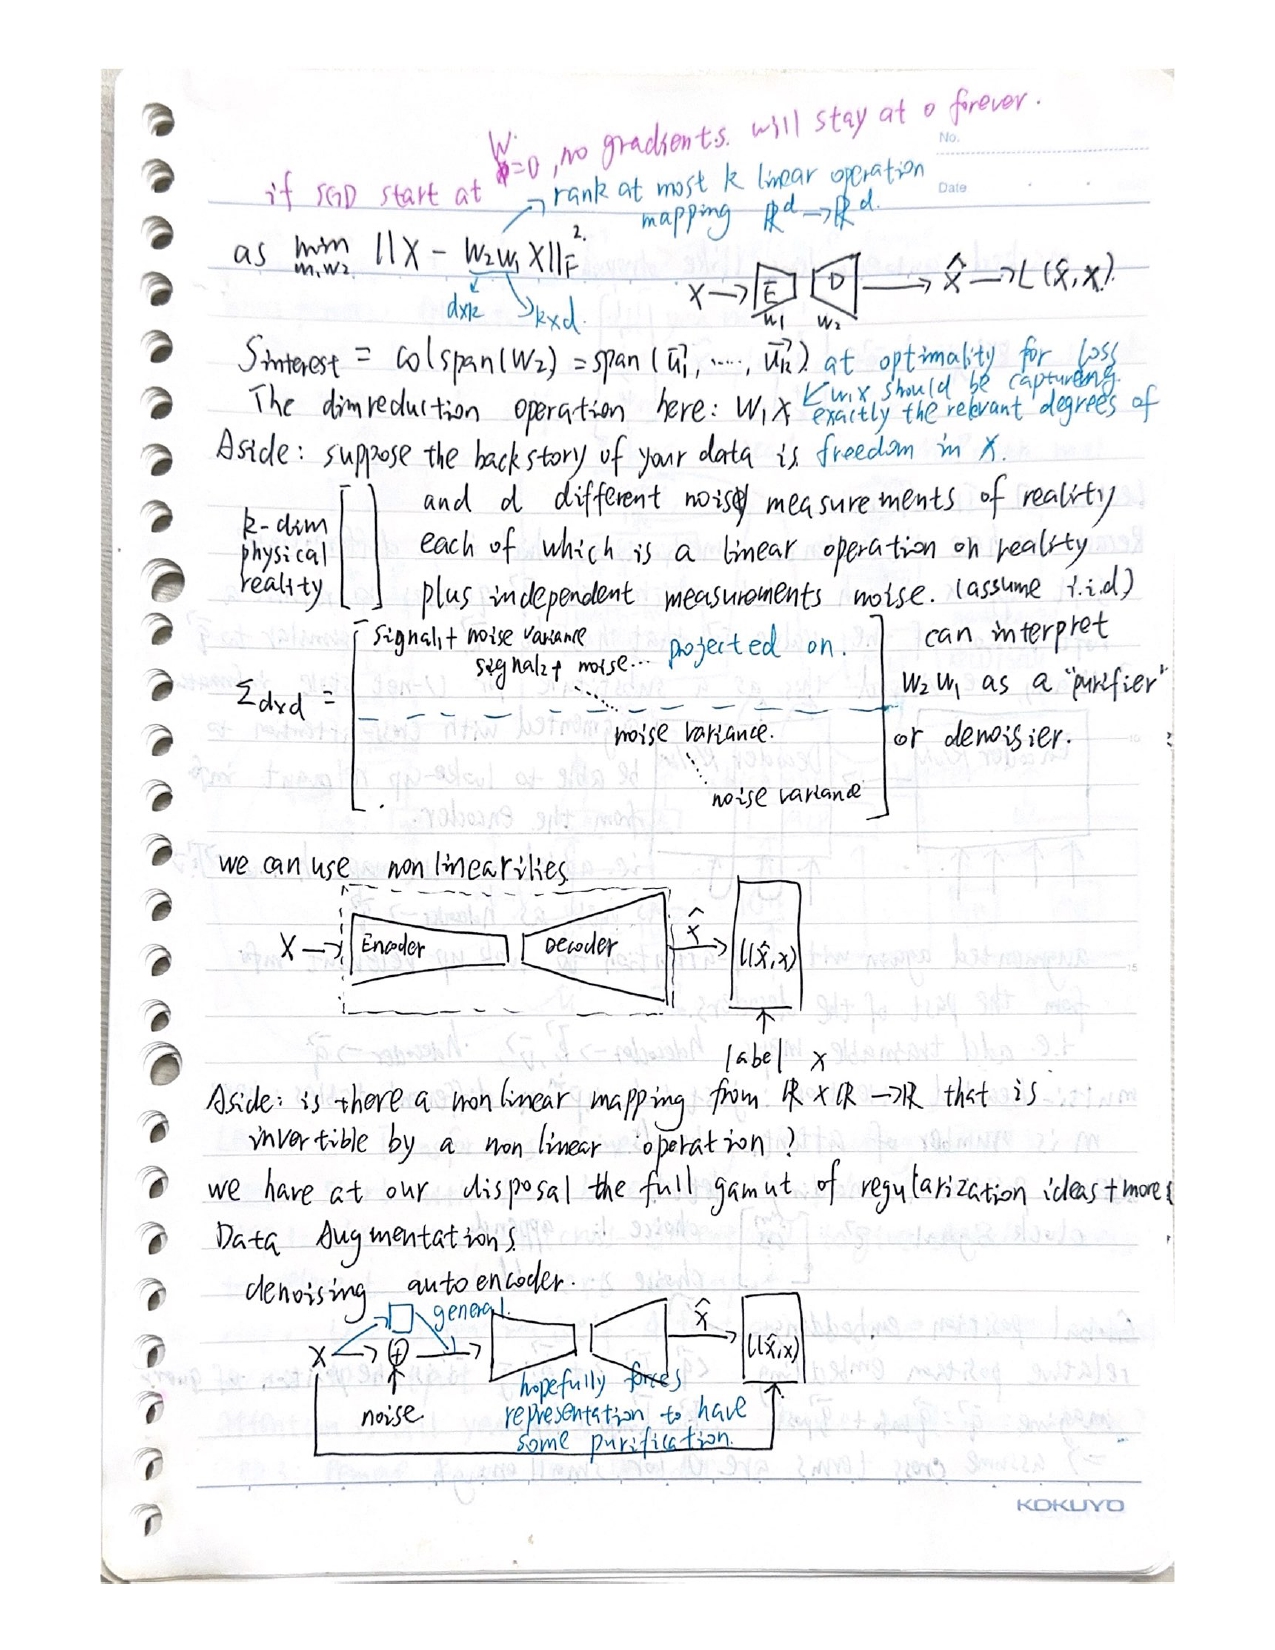 if SGD start at W=0, no gradients. will stay at 0 forever.
No.
Date
rank at most k linear operation
mapping ℝ^d → ℝ^d.
as min_{W1,W2} ||X - W2W1X||_F^2.
dxk
kxd.
X → E D → X̂ → L(x̂,x).
W1 W2
Sinterest = colspan(W2) = span(u⃗1, ...., u⃗k) at optimality for loss
W1X should be capturing
The dimreduction operation here: W1X exactly the relevant degrees of
Aside: suppose the backstory of your data is freedom in X.
k-dim
physical
reality
and d different noisy measurements of reality
each of which is a linear operation on reality
plus independent measurements noise. (assume i.i.d)
Σdxd =
signal1 + noise variance
signal2 + noise... projected on.
noise variance.
noise variance
can interpret
W2W1 as a "purifier"
or denoisier.
we can use nonlinearities
X → Encoder Decoder x̂ → L(x̂,x)
label x
Aside: is there a nonlinear mapping from ℝ x ℝ → ℝ that is
invertible by a nonlinear operation?
we have at our disposal the full gamut of regularization ideas + more:
Data Augmentations.
denoising autoencoder.
general.
X → ⊕ → x̂ → L(x̂,x)
noise.
hopefully forces
representation to have
some purification.
KOKUYO